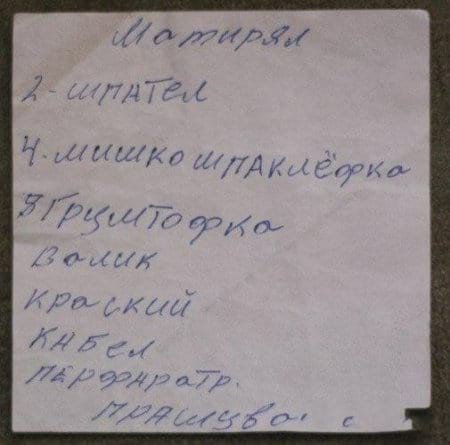 Матирял
2-шпател
4.мишко шпаклёфка
8 Грумтофка
Валик
краский
КАБел
перфаратр.
прашцва. с